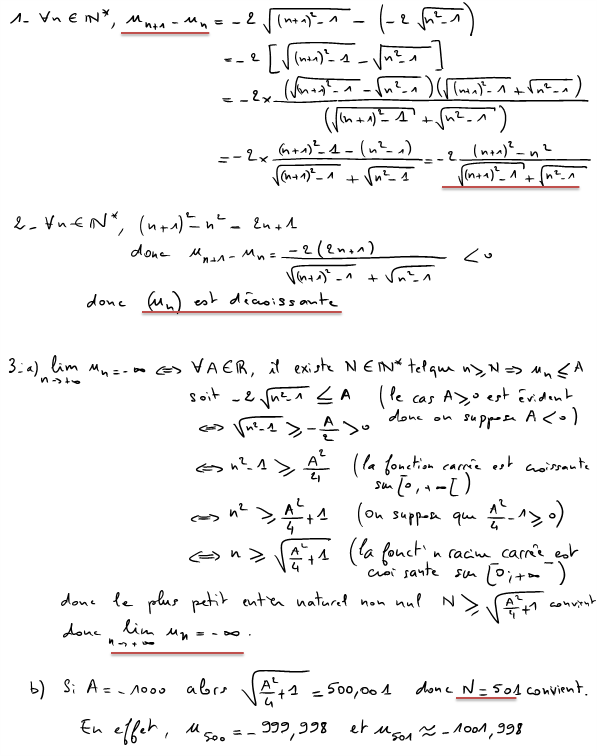 1- ∀n ∈ ℕ*, u_{n+1} - u_n = -2 √((n+1)² - 1) - (-2 √(n² - 1))
= -2 [√((n+1)² - 1) - √(n² - 1)]
= -2 × (√((n+1)² - 1) - √(n² - 1))(√((n+1)² - 1) + √(n² - 1)) / (√((n+1)² - 1) + √(n² - 1))
= -2 × ((n+1)² - 1 - (n² - 1)) / (√((n+1)² - 1) + √(n² - 1)) = -2 ((n+1)² - n²) / (√((n+1)² - 1) + √(n² - 1))
2- ∀n ∈ ℕ*, (n+1)² - n² = 2n+1
donc u_{n+1} - u_n = -2(2n+1) / (√((n+1)² - 1) + √(n² - 1)) < 0
donc (u_n) est décroissante
3-a) lim_{n→+∞} u_n = -∞ ⟺ ∀A∈ℝ, il existe N∈ℕ* tel que n ≥ N ⟹ u_n ≤ A
soit -2 √(n² - 1) ≤ A (le cas A ≥ 0 est évident
donc on suppose A < 0)
⟺ √(n² - 1) ≥ -A/2 > 0
⟺ n² - 1 ≥ A²/4 (la fonction carrée est croissante
sur [0, +∞[)
⟺ n² ≥ A²/4 + 1 (on suppose que A²/4 - 1 ≥ 0)
⟺ n ≥ √(A²/4 + 1) (la foncti n racine carrée est
croi sante sur [0; +∞ )
donc le plus petit entier naturel non nul N ≥ √(A²/4 + 1) convient
donc lim_{n→+∞} u_n = -∞.
b) Si A = -1000 alors √(A²/4 + 1) = 500,001 donc N = 501 convient.
En effet, u_500 = -999,998 et u_501 ≈ -1001,998